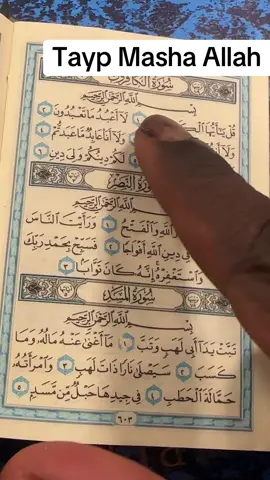 Tayp Masha Allah
سُورَةُ الكَافِرُونَ
بِسْمِ اللَّهِ الرَّحْمَٰنِ الرَّحِيمِ
قُلْ يَا أَيُّهَا لَا أَعْبُدُ مَا تَعْبُدُونَ ٢
وَلَا وَلَا أَنَا عَابِدٌ مَا عَبَدتُّمْ ٤
لَكُمْ دِينُكُمْ وَلِيَ دِينِ ٦
النَّصْرِ
بِسْمِ اللَّهِ الرَّحْمَٰنِ الرَّحِيمِ
اللَّهِ وَالْفَتْحُ ١ وَرَأَيْتَ النَّاسَ
فِي دِينِ اللَّهِ أَفْوَاجًا ٢ فَسَبِّحْ بِحَمْدِ رَبِّكَ
وَاسْتَغْفِرْهُ إِنَّهُ كَانَ تَوَّابًا ٣
سُورَةُ المَسَدِ
بِسْمِ اللَّهِ الرَّحْمَٰنِ الرَّحِيمِ
تَبَّتْ يَدَا أَبِي لَهَبٍ وَتَبَّ ١ مَا أَغْنَىٰ عَنْهُ مَالُهُ وَمَا
كَسَبَ ٢ سَيَصْلَىٰ نَارًا ذَاتَ لَهَبٍ ٣ وَامْرَأَتُهُ
حَمَّالَةَ الْحَطَبِ ٤ فِي جِيدِهَا حَبْلٌ مِّن مَّسَدٍ ٥
٦٠٣